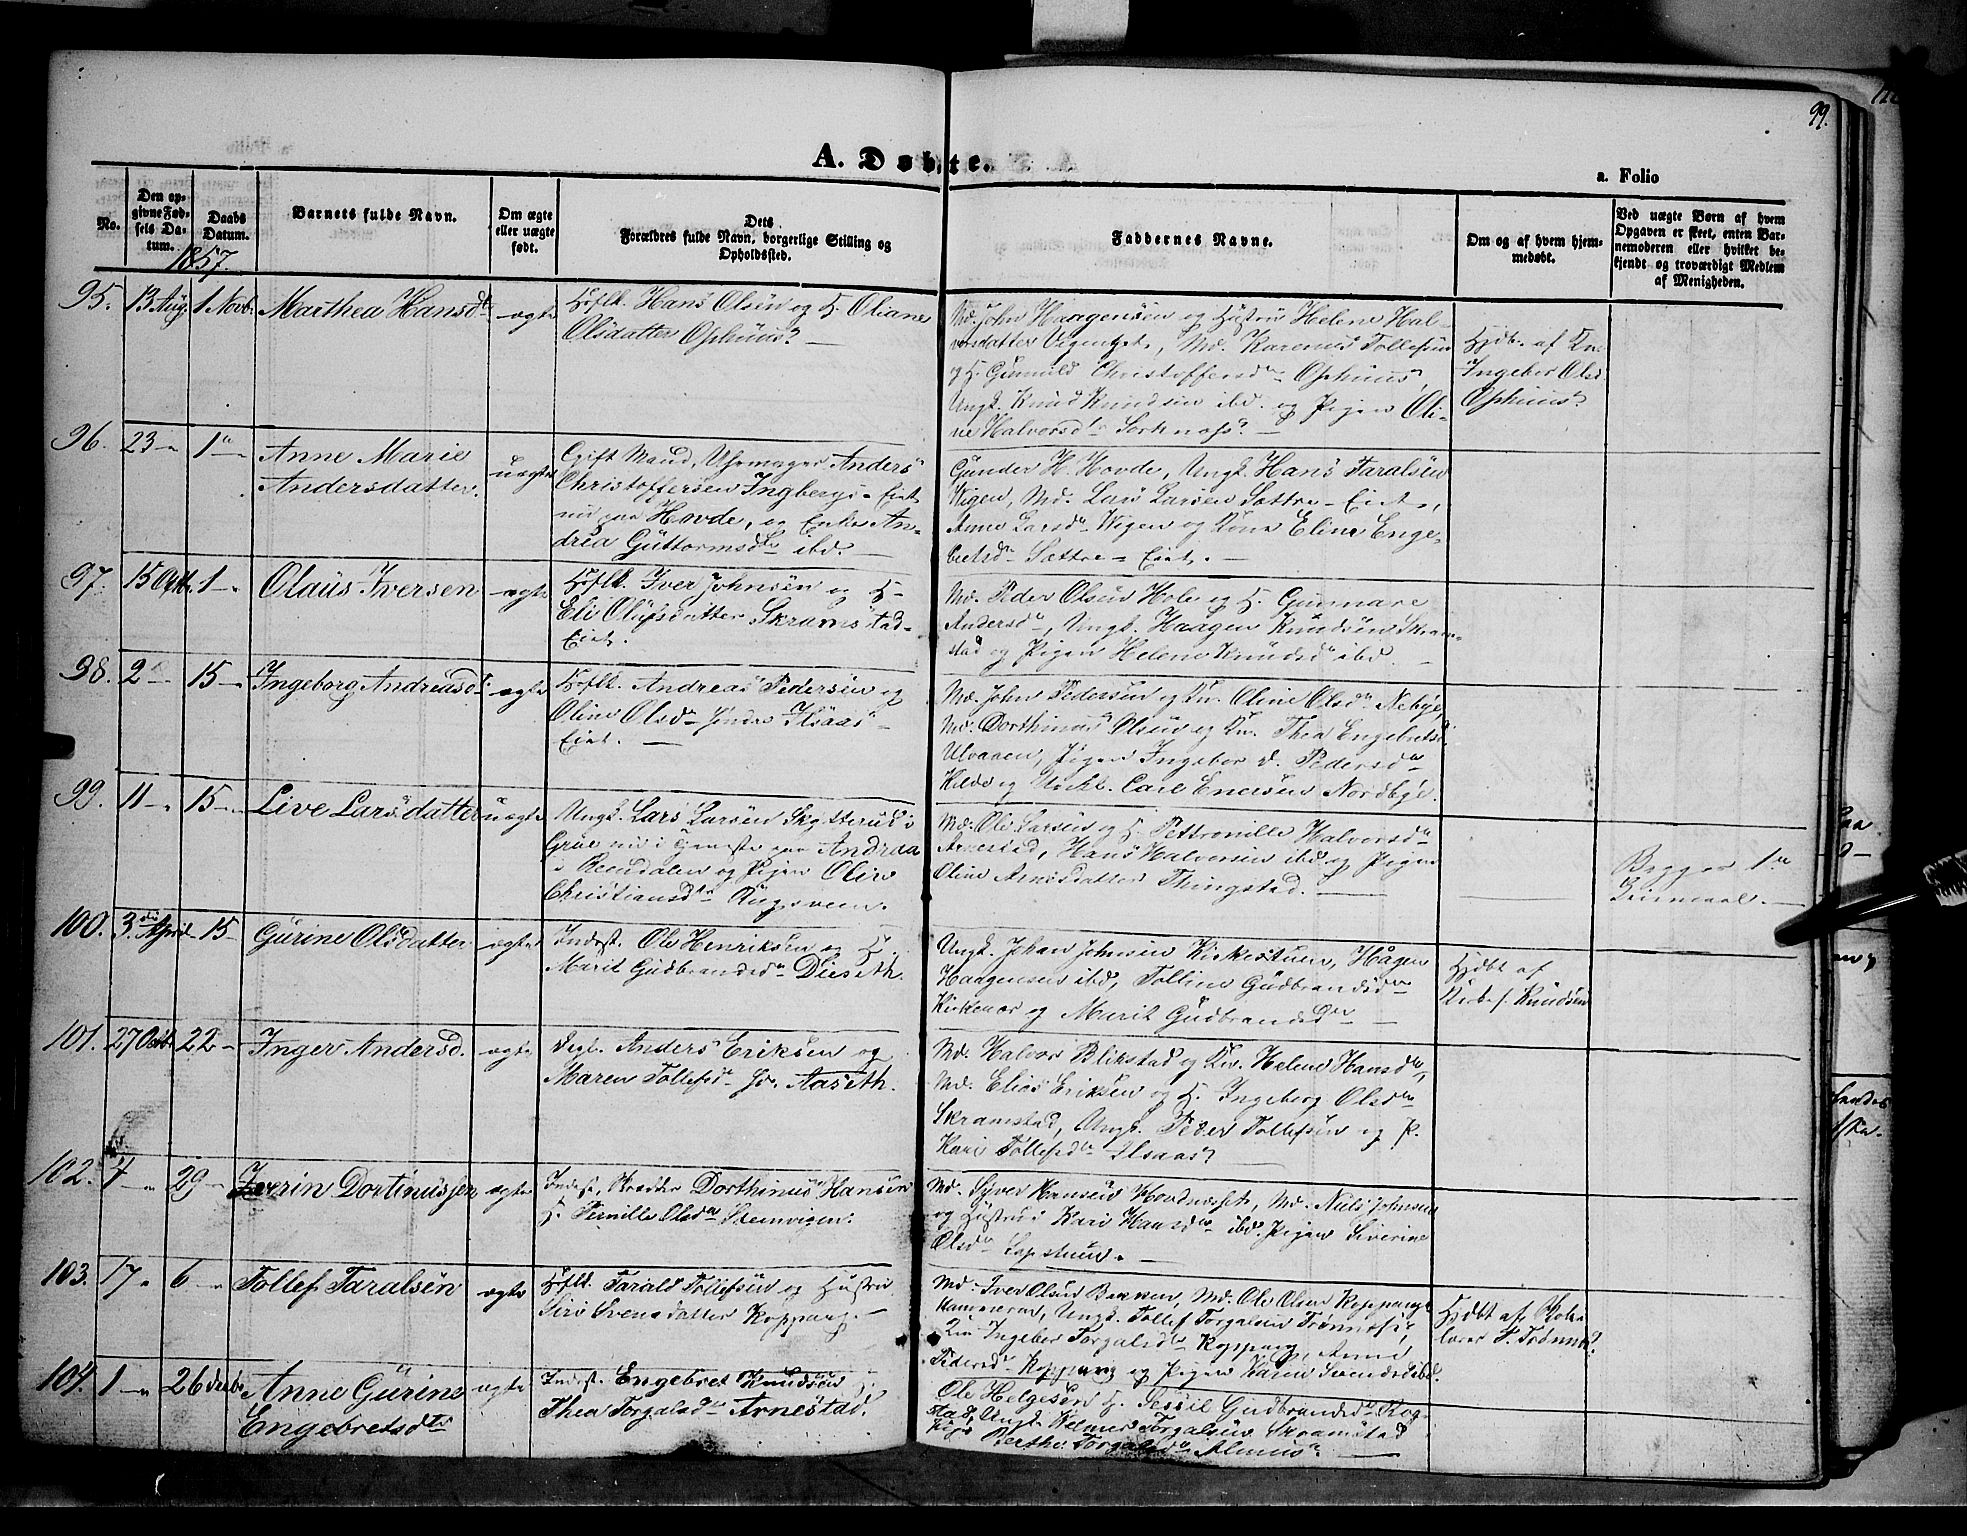 99.
A. Døbte.
a. Folio
No.
Den op-
givne Fød-
sels Da-
tum.
Daabs
Datum.
Barnets fulde Navn.
Om ægte
eller uægte
født.
Dets
Forældres fulde Navn, borgerlige Stilling og
Opholdssted.
Faddernes Navne.
Om og af hvem hjem-
medøbt.
Ved uægte Børn af hvem
Opgaven er skeet, enten Bar-
nemoderen eller hvilket be-
kjendt og troværdigt Medlem
af Menigheden.
1857.
95. 13 Aug. 1 Novb. Marthea Hansdt ægte
Hans Olsen og H. Oliane
Olsdatter Ophuus.
Md. John Haagensen og Hustru Helene Hal-
vorsdatter, Md. Karenus Tollefsen
og H. Gunnild Christoffersdr Ophuus,
Ungk. Knud Knudsen ibd. og Pigen Oli-
ne Halvorsd
Hjdb. af
Ingebor Olsd.
Ophuus
96. 23 - 1 - Anne Marie
Andersdatter. uægte
Gift Mand, Uhrmager Anders
Christoffersen Ingbergs-Eiet
nu paa Hovde, og Enke An-
drea Guttormsdtr ibd.
Gunder H. Hovde, Ungk. Hans Taralsen
Wigen, Md. Lars Larsen Sættre-Eiet,
Anne Larsdr Wigen og Kone Eline Enge-
bretsdr Sættre-Eiet.
97. 15 Octb. 1 - Olaus Iversen ægte
Iver Johnsen og H.
Eli Olufsdatter Skramstad-
Eiet.
Md. Peder Olsen Hole og H. Gunnare
Andersdr, Ungk. Haagen Knudsen Skram-
stad og Pigen Helene Knudsdr ibd.
98. 2 - 15 - Ingeborg Andreasdt. ægte
Andreas Pedersen og
Oline Olsdr Ilsaas-
Eiet.
Md. John Pedersen og Kv. Oline Olsdr Nebye,
Md. Dorthinus Olsen og Kv. Thea Engebretsd.
Ulvaaen, Pigen Ingebor Pedersdr
og Carl Enersen Nordbye.
99. 11 - 15 - Live Larsdatter uægte
Ungk. Lars Larsen i
Grue nu i Tjeneste paa Andraa
i Rendalen og Pigen Oline
Christiansdr
Md. Ole Larsen og H. Pettronille Halvorsdr
Arnestad, Hans Halvorsen ibd og Pigen
Oline Arnesdatter Thingstad.
Begges 1ste
Leiermaal.
100. 3die April 15 - Gurine Olsdatter ægte
Inderst. Ole Henriksen og H.
Marit Gudbrandsdr Dieseth.
Ungk. Johan Johnsen Kirkestuen, Hågen
Haagensen ibd, Tolline Gudbrandsdr
og Marit Gudbrandsdr
Hjdbt af
Knudsen
101. 27 Octb. 22 - Inger Andersd. ægte
Anders Eriksen og
Maren Tollefsd Aaseth.
Md. Halvor Blikstad og Kv. Helene Hansdr,
Md. Elias Eriksen og H. Ingeborg Olsdr
Skramstad, Ungk. Peder Tollefsen og P.
Kari Tollefsdr Ilsaas
102. 4 - 29 - Iverin Dortinussen ægte
Inderst, Skrædder Dorthinus Hansen
H. Pernille Olsdr Steenvigen.
Md. Syver Hansen, Md. Niels Johnsen
og Hustru Kari Hansdr ibd. Pigen Siverine
Olsdr
103. 17 - 6 - Tollef Taralsen ægte
Tarald Tollefsen og Hustru
Siri Svensdatter Koppang.
Md. Iver Olsen Bakken, Md. Ole Olsen Koppang
Ungk. Tollef Torgalsen Trønnæs,
Ingebor Torgalsdr Koppang, Anne
Pedersdr Koppang og Pigen Karen Svendsd ibd.
Hjdbt af Skole
lærer P. Trønnes
104. 1 - 26 Decbr Anne Gurine
Engebretsdtr ægte
Inderst. Engebret Knudsen
Thea Torgalsdr Arnestad.
Ole Helgesen H. Sessil Gudbrandsdr Rog-
stad, Ungk. Helmer Torgalsen Skramstad
Pige Berthe Torgalsdr